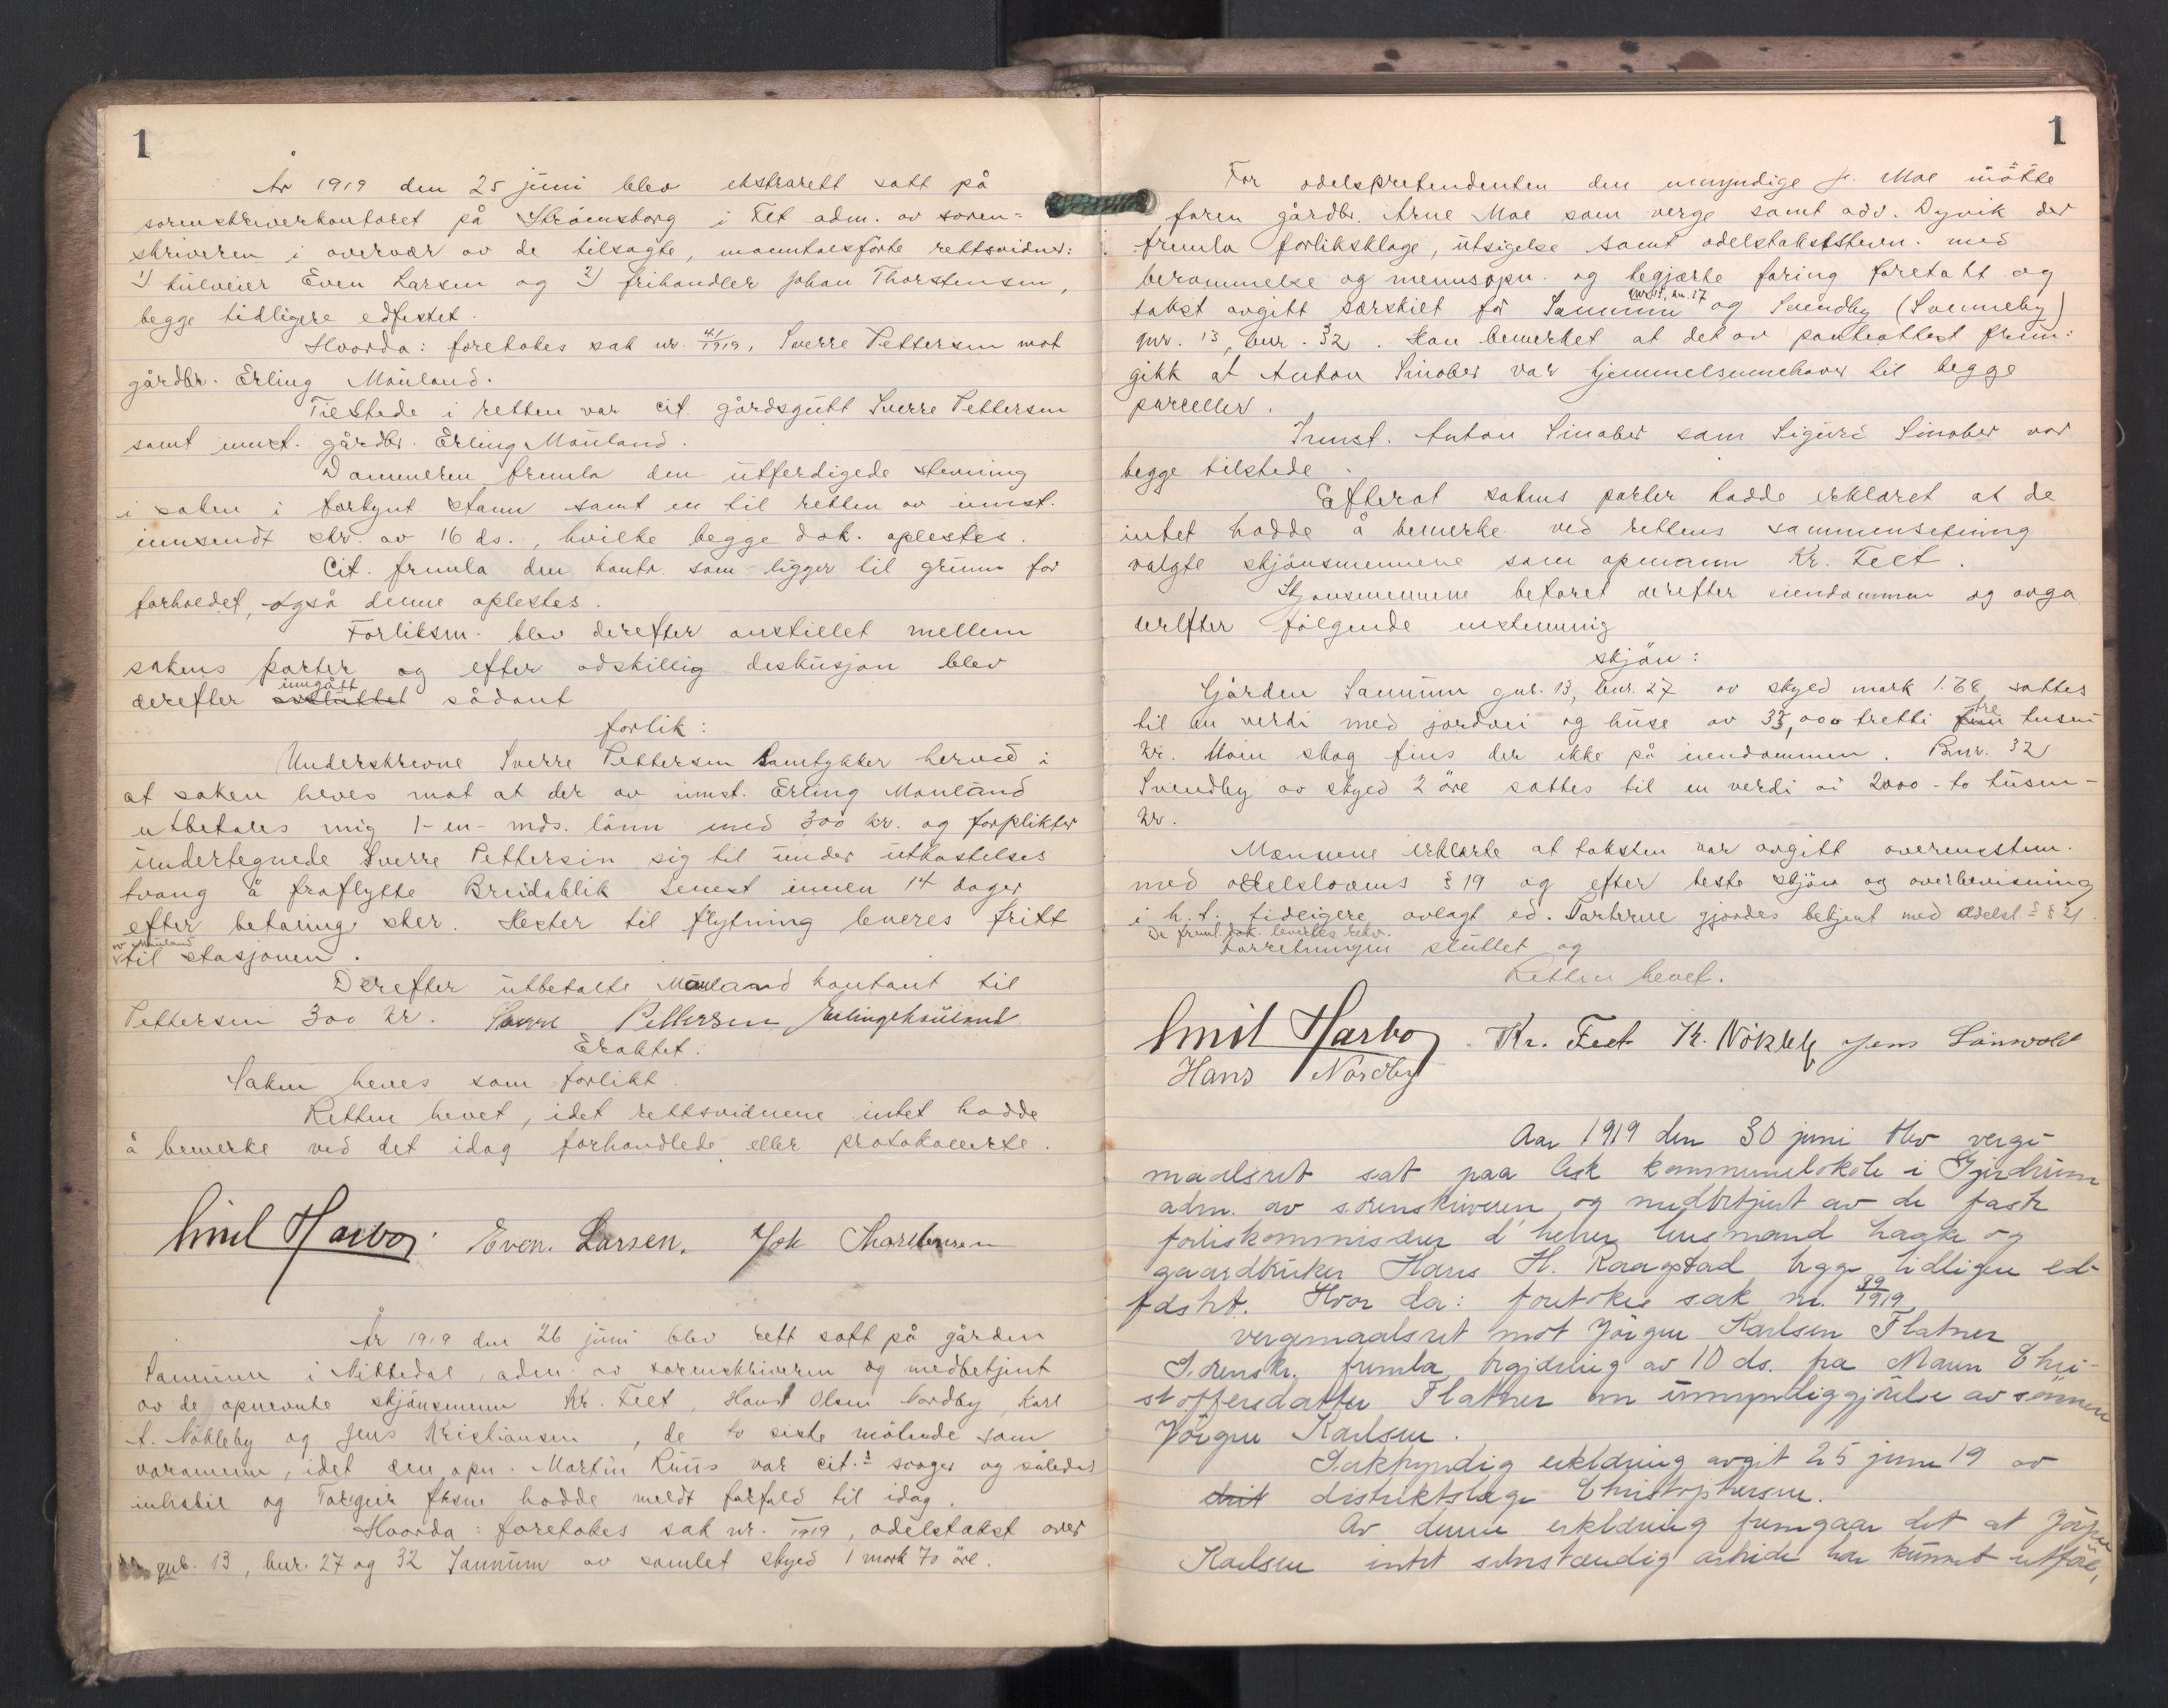 1
År 1919 den 25 juni blev ekstrarett satt på
sorenskriverkontoret på Strömsborg i Fet adm. av soren-
skriveren i overvær av de tilsagte, manntalsförte rettsvidner:
1) hulveier Even Larsen og 2) frihandler Johan Thorstensen,
begge tidligere edfestet.
Hvorda: foretokes sak nr. 41/1919, Sverre Pettersen mot
gårdbr. Erling Mauland.
Tilstede i retten var cit. gårdsgutt Sverre Pettersen
samt innst. gårdbr. Erling Mauland.
Dommeren fremla den utferdigede stevning
i saken i forkynt stann samt en til retten av innst.
innsendt skr. av 16 ds., hvilke begge dok. oplestes.
Cit. fremla den kontr. som ligger til grunn for
forholdet, også denne oplestes.
Forliksm. blev derefter anstillet mellem
sakens parter og efter adskillig deskusjon blev
inngått
derefter avsluttet sådant
forlik:
Underskrevne Sverre Pettersen samtykker herved i
at saken heves mot at der av innst. Erling Mauland
utbetales mig 1-en- mds. lönn med 300 kr. og forplikter
undertegnede Sverre Pettersen sig til under utkastelses
tvang å fraflytte Breidablik senest innen 14 dager
efter betaling sker. Hester til flytning leveres fritt
av Mauland
til stasjonen.
Derefter utbetalte Mauland kontant til
Pettersen 300 kr. Sverre Pettersen Erling Mauland
Eraktet:
Saken heves som forlikt.
Retten hevet, idet rettsvidnene intet hadde
å bemerke ved det idag forhandlede eller protokollerte.
Emil Harboy. Even. Larsen. Joh Thorstensen
År 1919 den 26 juni blev rett satt på gården
Sannum i Nittedal, adm. av sorenskriveren og medbetjent
av de opnevnte skjönsmenn Kr. Feet, Hans Olsen Nordby, Karl
A. Nökleby og Jens Kristiansen, de to siste mötende som
varamenn, idet den opn. Martin Ruus var cit.s svoger og således
inhabil og Torgeir hadde meldt forfald til idag.
Hvorda: foretokes sak nr. 1919, odelstakst over
gnr. 13, bnr. 27 og 32 Sannum av samlet skyld 1 mark 70 öre.
1
For odelspretendenten den umyndige Moe mötte
faren gårdbr. Arne Moe som verge samt adv. Dyvik der
fremla forliksklage, utsigelse samt odelstakststevn. med
berammelse og mennsopn. og begjærte foring foretatt og
gnr. 13, bnr. 27
takst avgitt særskilt for Sannum og Svendby (Svenneby)
gnr. 13, bnr. 32. Han bemerket at det av panteattest frem-
gikk at Anton Sinober var hjemmelsinnehaver til begge
parceller.
Innst. Anton Sinober som Sigurd Sinober var
begge tilstede.
Efterat sakens parter hadde erklæret at de
intet hadde å bemerke ved rettens sammensetning
valgte skjönsmennene som opmann Kr. Feet.
Skjönsmennene befaret derefter eiendommen og avga
derefter fölgende enstemmig
skjön:
Gården Sannum gnr. 13, bnr. 27 av skyld mark 1.68, sattes
tre
til en verdi med jordvei og huse av 33,000 tretti fem tusen
kr. Noen skog fins der ikke på eiendommen. Bnr. 32
Svendby av skyld 2 öre sattes til en verdi av 2000 - to tusen -
kr.
Mennene erklærte at taksten var avgitt overensstem.
med odelslovens § 19 og efter beste skjön og overbevisning
i h.t. tidligere avlagt ed. Parterne gjordes bekjent med odelsl.s § 21.
De freml. dok. levertes rekv.
Forretningen sluttet og
Retten hevet.
Emil Harboy. Kr. Feet K. Nökleby Jens
Hans Nordby
Aar 1919 den 30 juni blev verge-
maalsret sat paa Ask kommunelokale i Gjerdrum
adm. av sorenskriveren og medbetjent av de faste
forlikskommissærer d'herrer husmand Hagte og
gaardbruker Hans H. Kaagstad begge tidligere ed-
fæstet. Hvor da: foretokes sak nr. 39/1919
vergemaalsret mot Jörgen Karlsen Flatner
S.renskr. fremla begjæring av 10 ds. fra Maren Chri-
stoffersdatter Flatner om umyndiggjörelse av sönnen
Jörgen Karlsen.
Sakkyndig erklæring avgit 25 juni 19 av
distriktslæge Christophersen.
Av denne erklæring fremgaar det at Jörgen
Karlsen intet selvstændig arbeide har kunnet utföre,